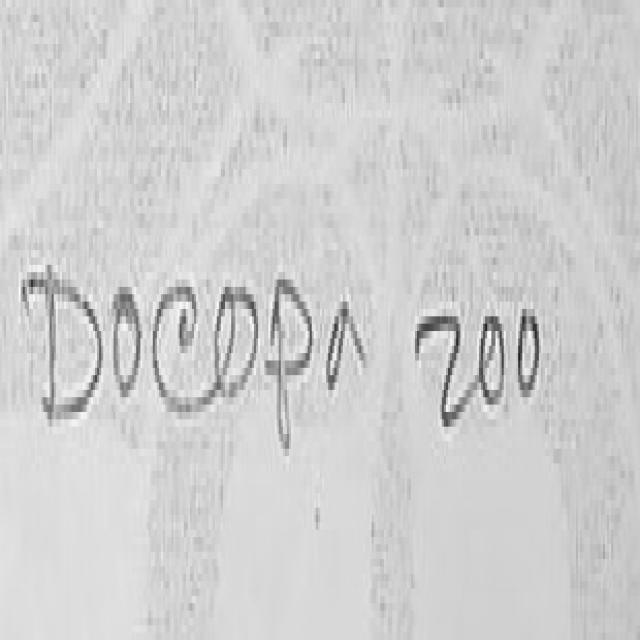 Docopa 200